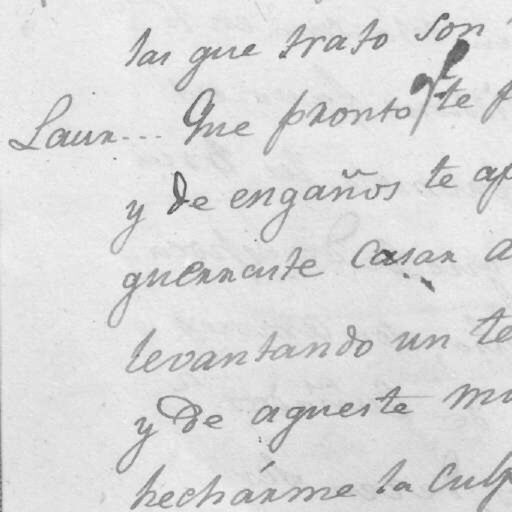 las que trato son
Laur... Que pronto te
y de engaños te
querraste casar
levantando un te
y de aqueste
hechárme la culp